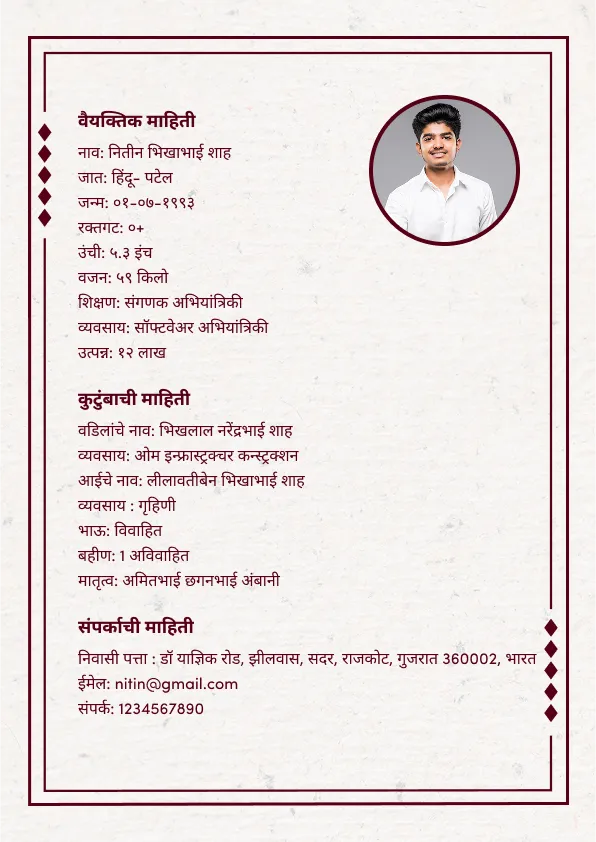 वैयक्तिक माहिती
नाव: नितीन भिखाभाई शाह
जात: हिंदू- पटेल
जन्म: ०१-०७-१९९३
रक्तगट: ०+
उंची: ५.३ इंच
वजन: ५९ किलो
शिक्षण: संगणक अभियांत्रिकी
व्यवसाय: सॉफ्टवेअर अभियांत्रिकी
उत्पन्न: १२ लाख
कुटुंबाची माहिती
वडिलांचे नाव: भिखलाल नरेंद्रभाई शाह
व्यवसाय: ओम इन्फ्रास्ट्रक्चर कन्स्ट्रक्शन
आईचे नाव: लीलावतीबेन भिखाभाई शाह
व्यवसाय : गृहिणी
भाऊ: विवाहित
बहीण: 1 अविवाहित
मातृत्व: अमितभाई छगनभाई अंबानी
संपर्काची माहिती
निवासी पत्ता : डॉ याज्ञिक रोड, झीलवास, सदर, राजकोट, गुजरात 360002, भारत
ईमेल: nitin@gmail.com
संपर्क: 1234567890